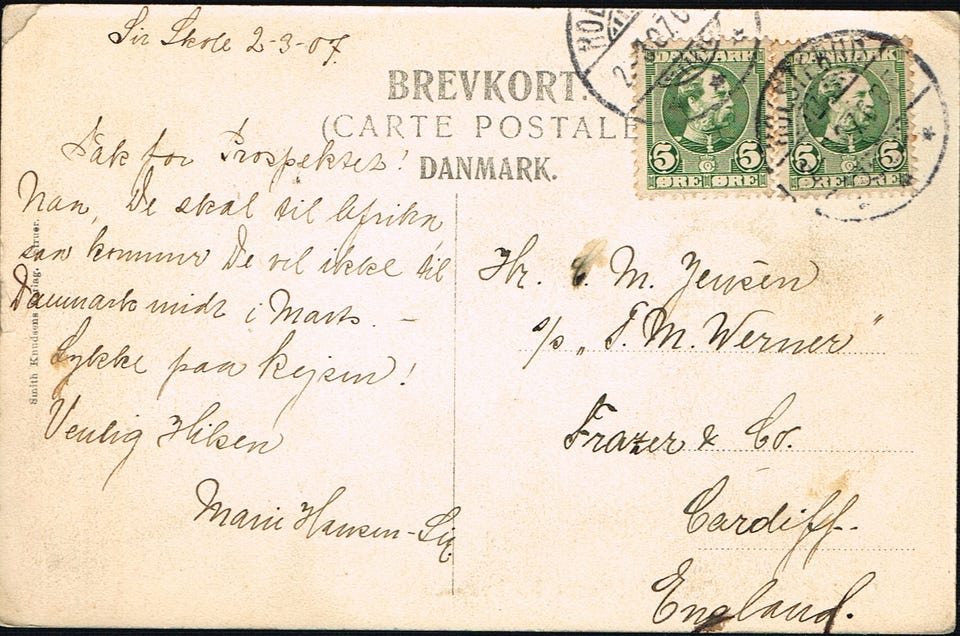 Sir Skole 2-3-07
BREVKORT.
(CARTE POSTALE
DANMARK.
DANMARK
5 5
ØRE ØRE
DANMARK
5 5
ØRE ØRE
Tak for Prospektet!
Naa, De skal til Afrika
saa kommer De vel ikke til
Danmark midt i Marts. –
Lykke paa Rejsen!
Venlig Hilsen
Marie Hansen-Sir
Hr. C. M. Jensen
s/s „T. M. Werner"
Frazer & Co.
Cardiff.
England.
Smith Knudsens